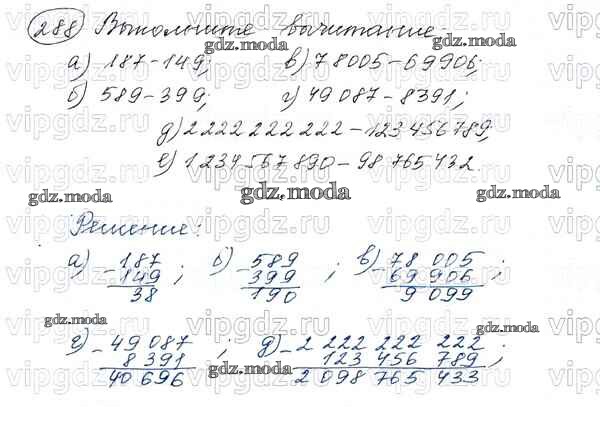 288) Выполните вычитание.
а) 187-149; в) 78005-69906;
б) 589-399; г) 49087-8391;
д) 2 222 222 222-123 456 789;
е) 1 234 567 890-98 765 432.
Решение:
а) -187 ; б) -589 ; в) -78 005 ;
149 399 69 906
38 190 9 099
г) -49 087 ; д) -2 222 222 222 ;
8 391 123 456 789
40 696 2 098 765 433
vipgdz.ru
gdz.moda